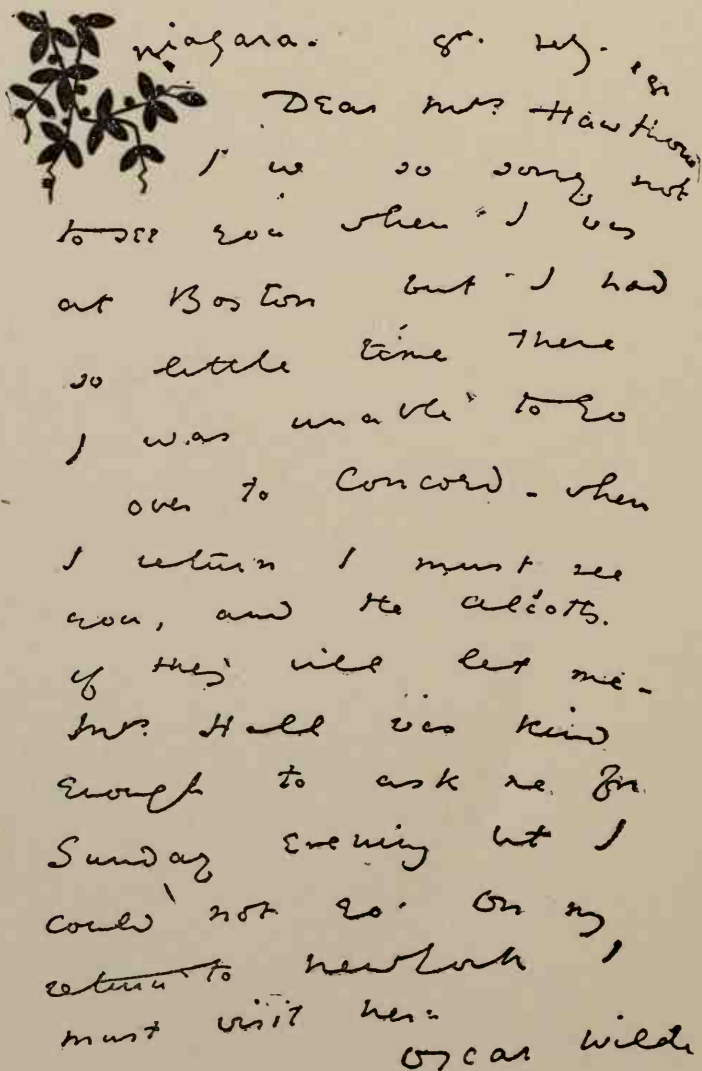 niagara.
Dear Mrs. Hawthorne
I was so sorry not
to see you when I was
at Boston but I had
so little time there
I was unable to go
over to Concord - when
I return I must see
you, and the Alcotts.
if they will let me -
Mrs. Hall was kind
enough to ask me for
Sunday evening but I
could not go. On my
return to New York I
must visit her.
Oscar Wilde